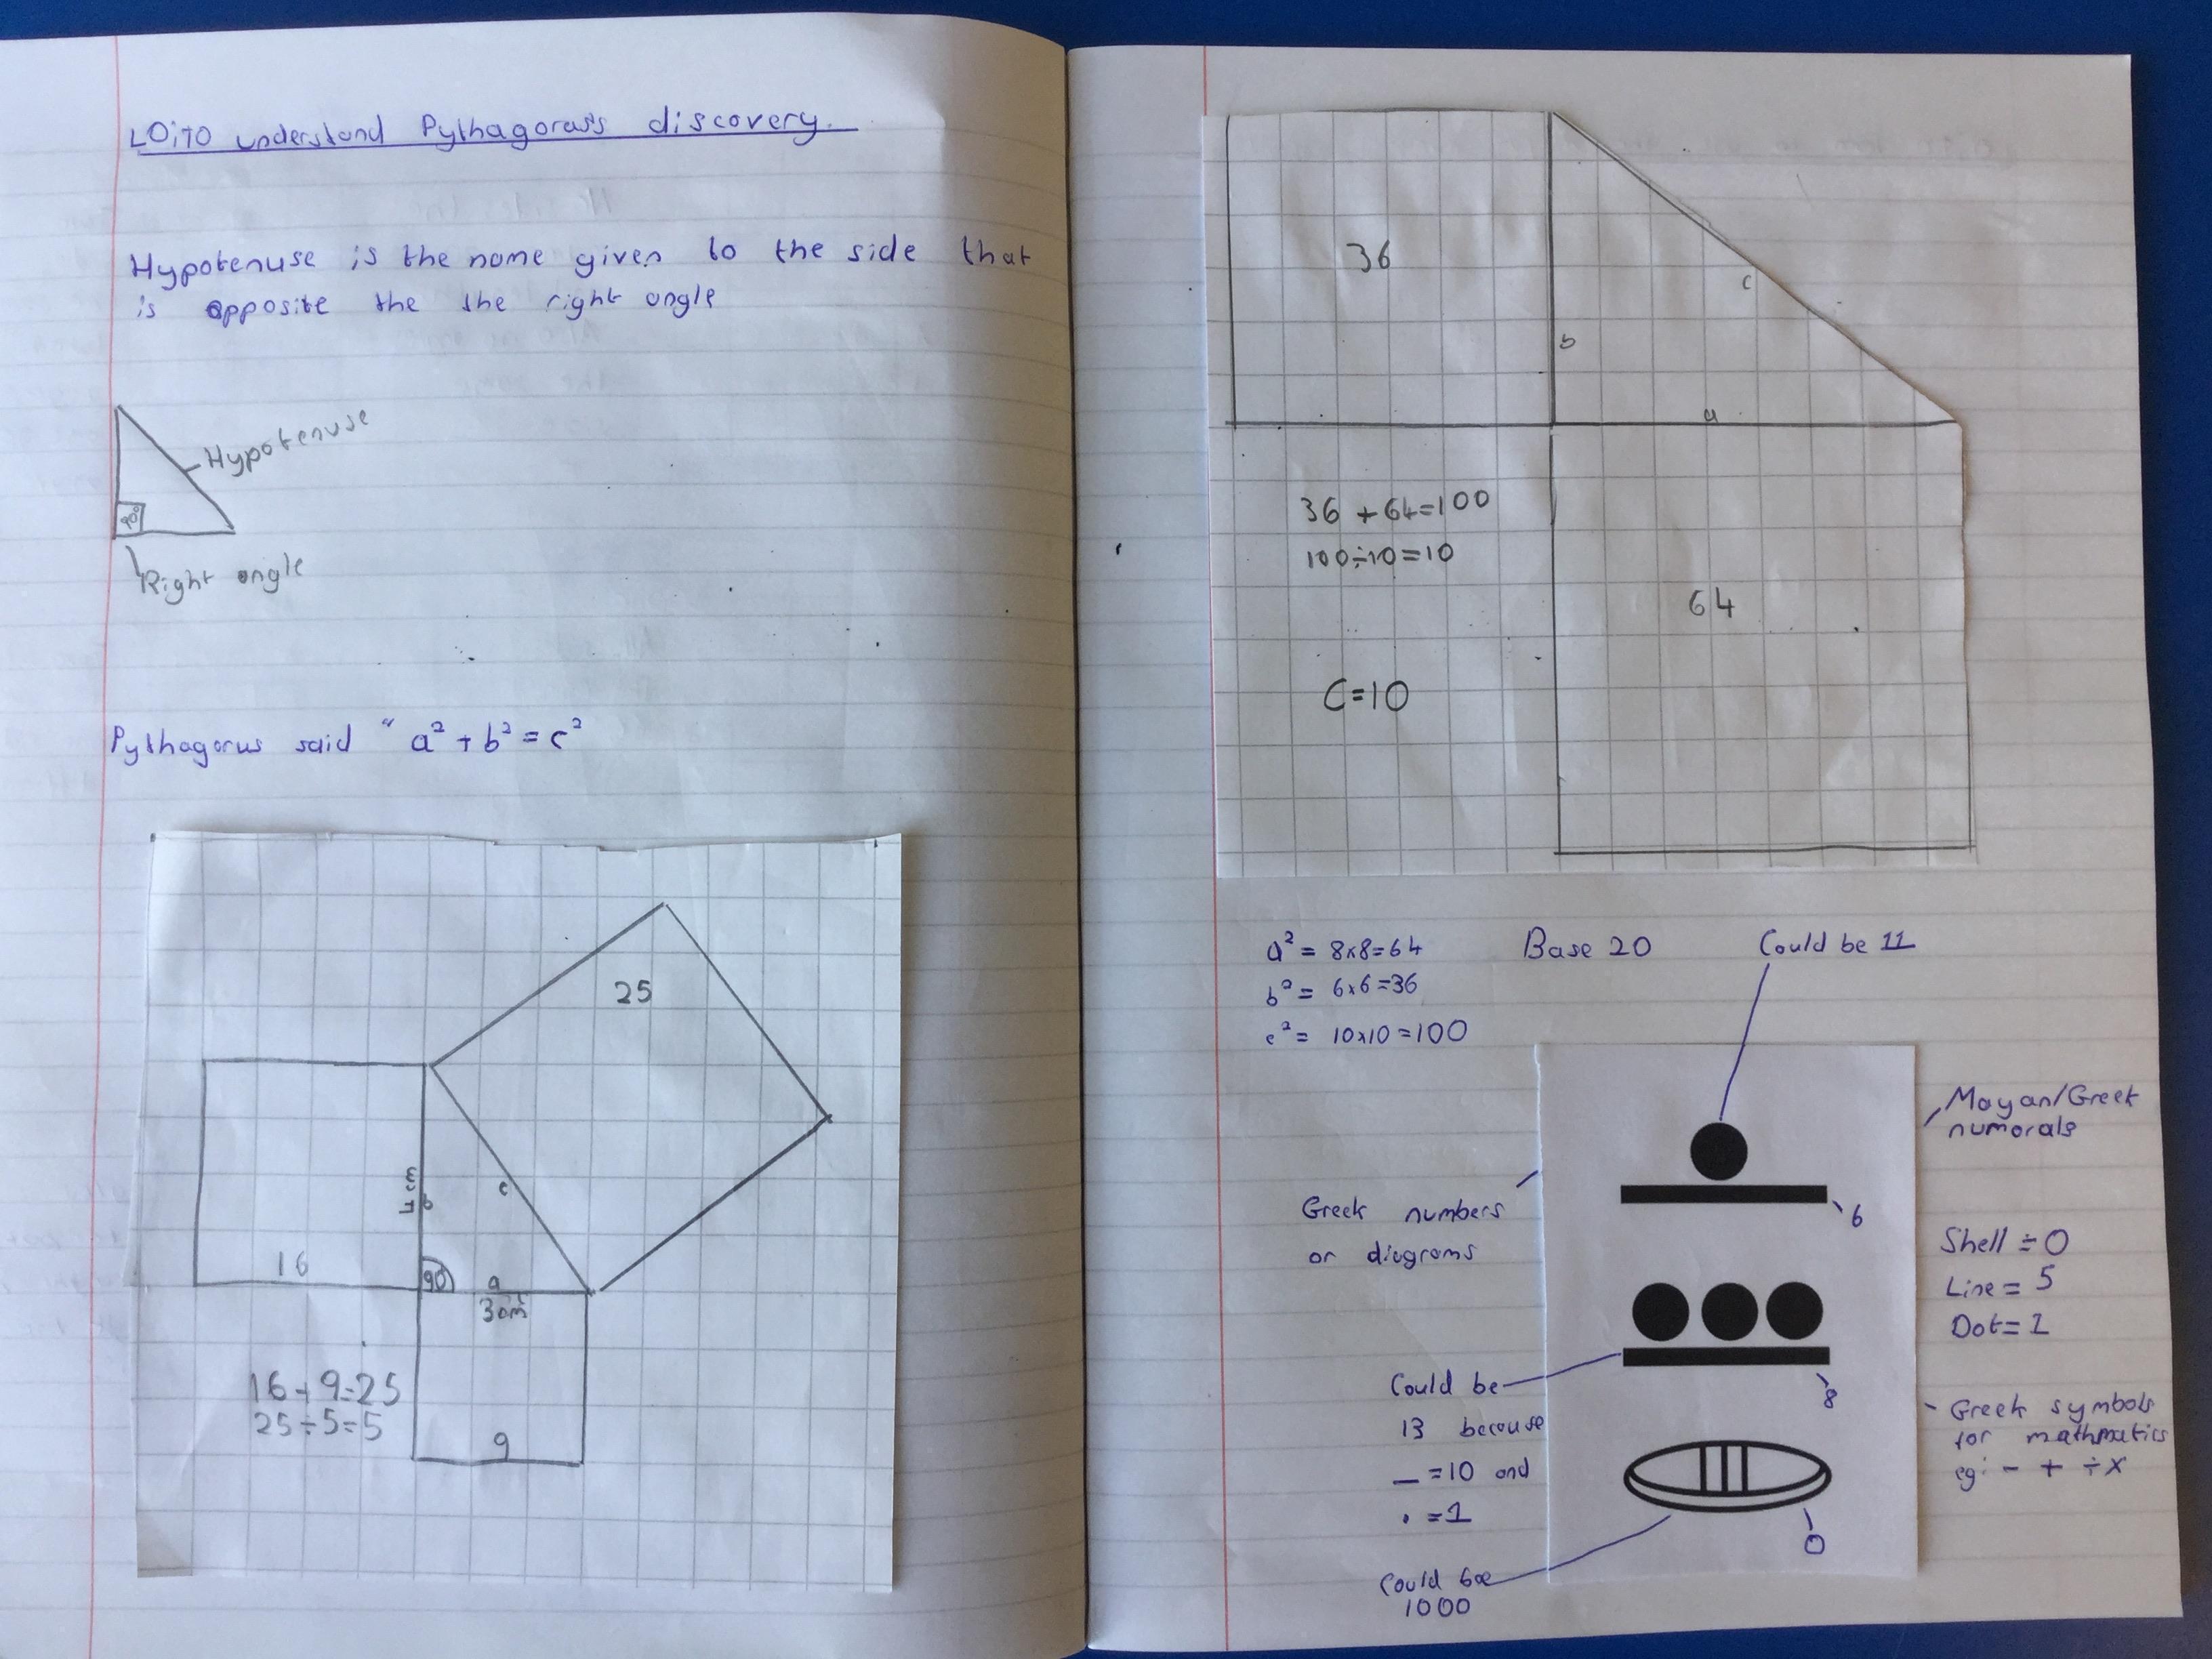 LO: TO understand Pythagoras's discovery.
Hypotenuse is the name given to the side that
is opposite the the right angle
Hypotenuse
90°
Right angle
Pythagorus said " a² + b² = c²
25
4cm
b
c
16
90
a
3cm
16+9=25
25÷5=5
9
36
c
b
a
36 + 64=100
100÷10=10
64
C=10
a² = 8x8=64
b² = 6x6=36
c² = 10x10=100
Base 20
Could be 11
Mayan/Greek
numorals
6
Greek numbers
or diagrams
Shell = 0
Line = 5
Dot= 1
8
Could be
13 because
_ =10 and
. =1
Greek symbols
for mathmatics
eg: - + ÷ x
0
Could be
1000